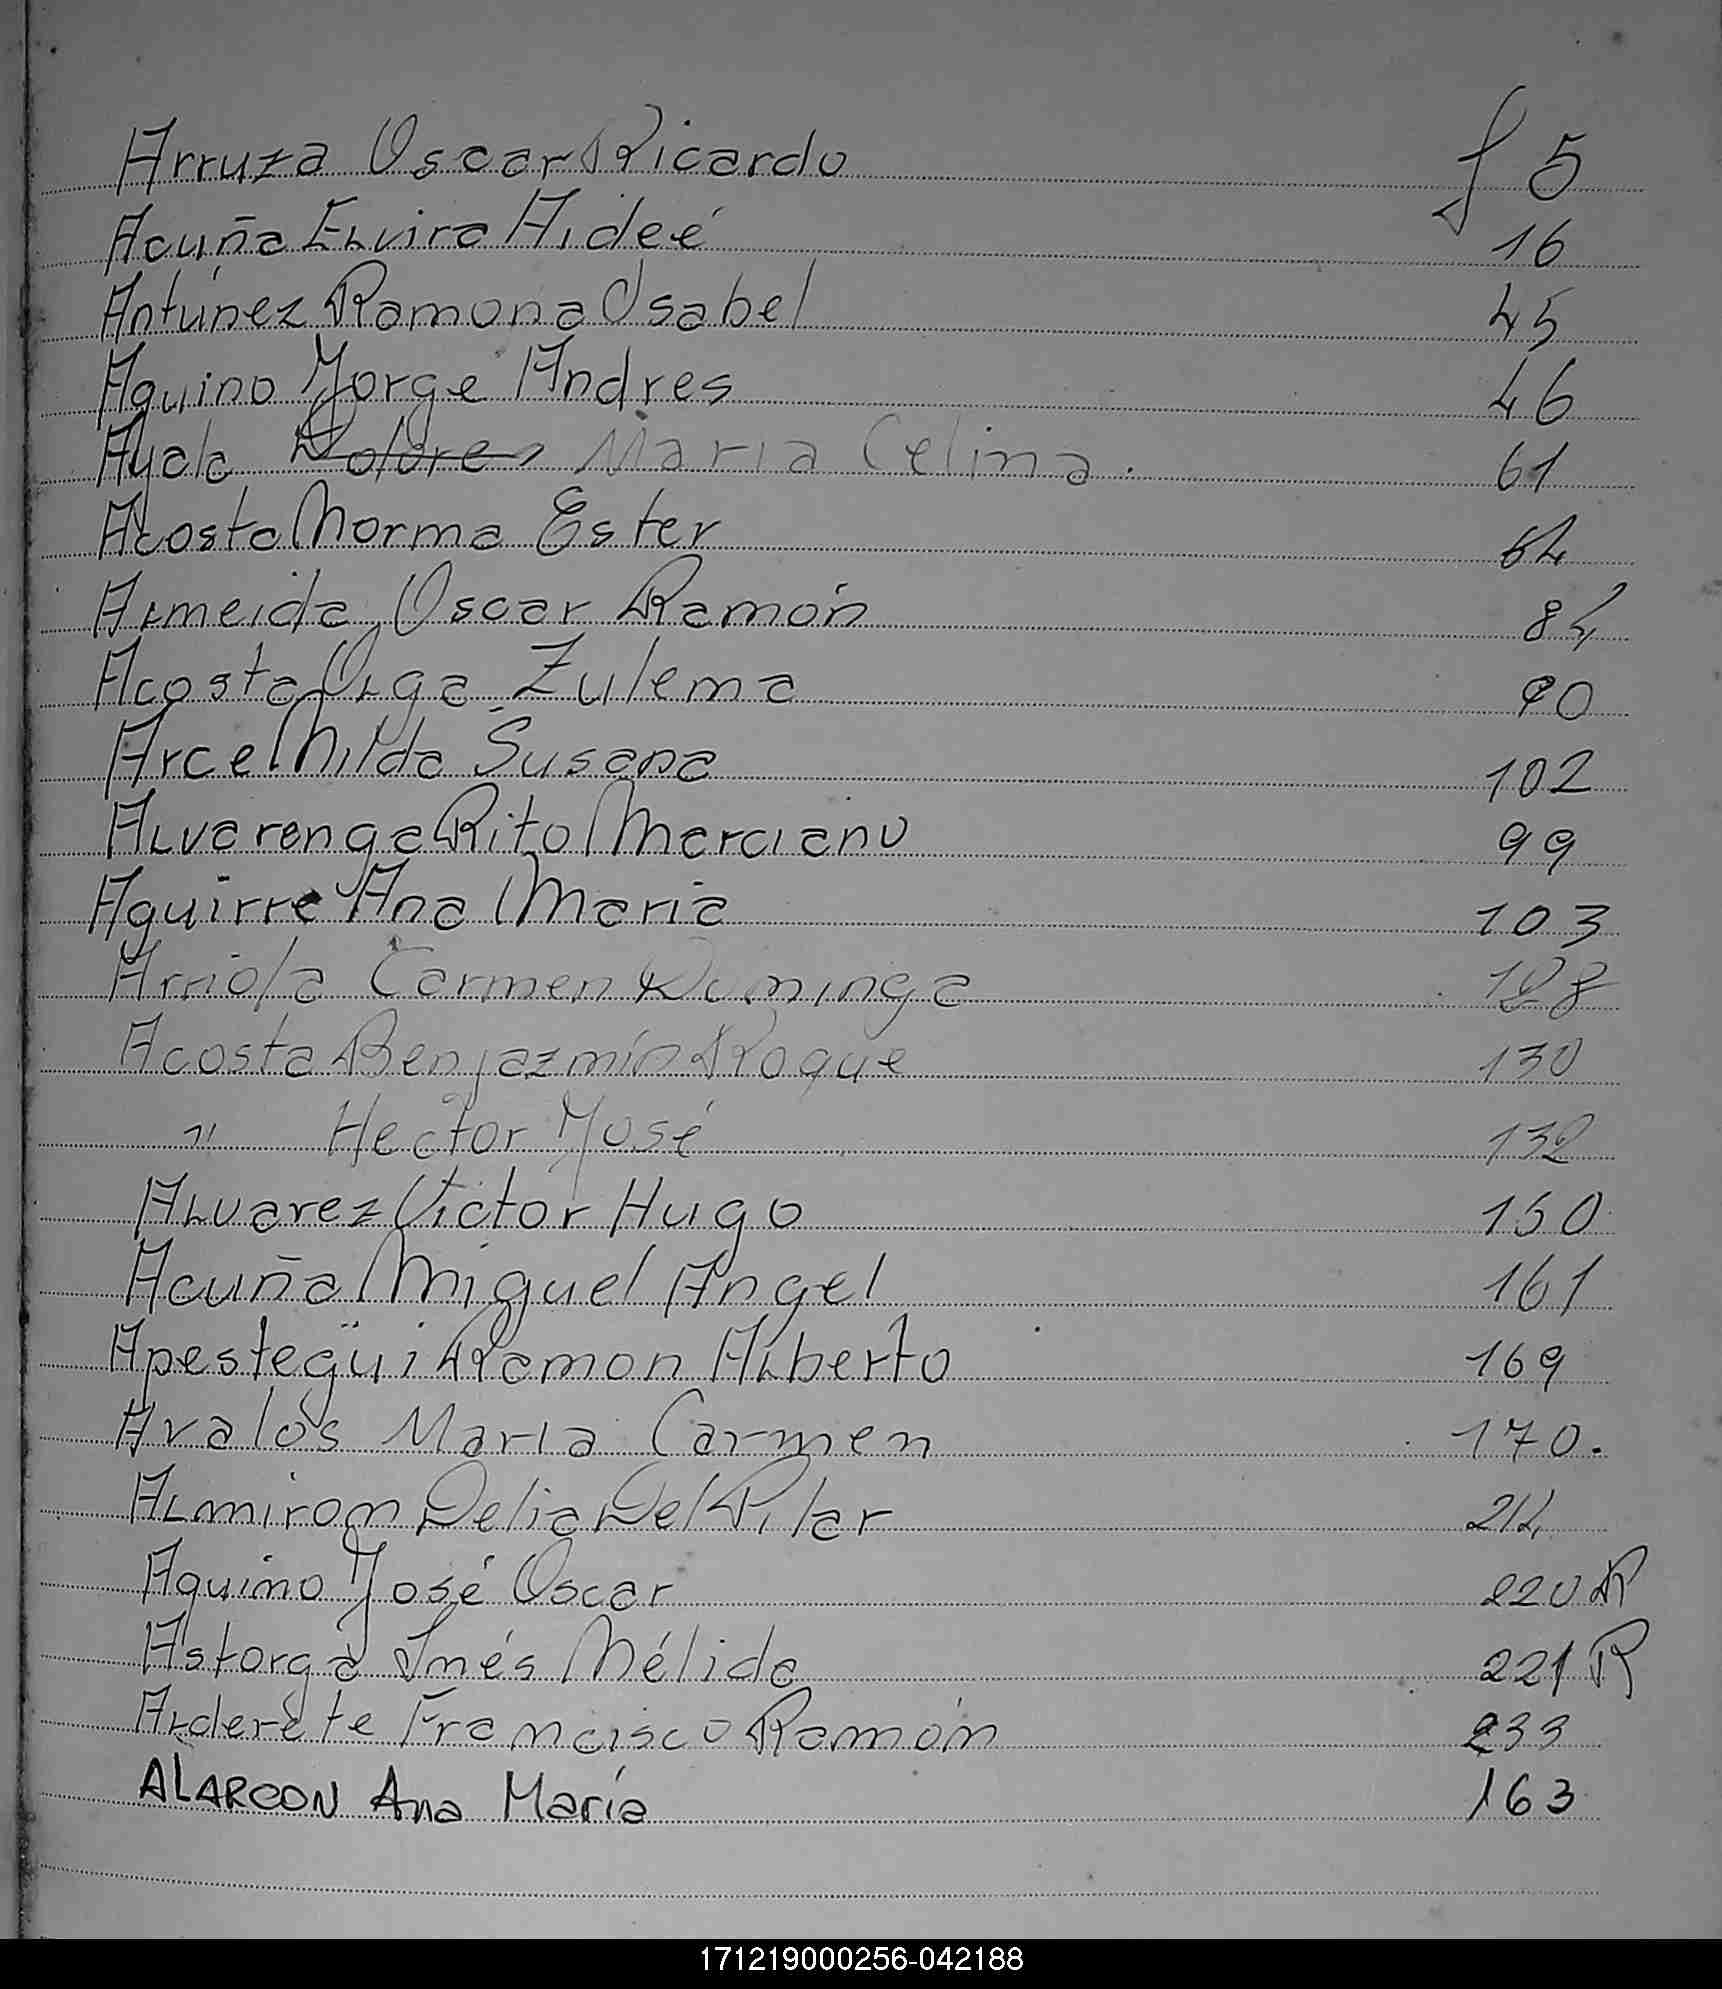 Arruza Oscar Ricardo f 5
Acuña Elvira Aideé 16
Antúnez Ramona Isabel 45
Aquino Jorge Andres 46
Ayala Dolores María Celina. 61
Acosta Norma Ester 64
Almeida Oscar Ramón 84
Acosta Olga Zulema 90
Arce Nilda Susana 102
Alvarenga Rito Marciano 99
Aguirre Ana Maria 103
Arriola Carmen Dominga 128
Acosta Benjazmín Roque 130
" Hector José 132
Alvarez Victor Hugo 150
Acuña Miguel Angel 161
Apestegüi Ramon Alberto 169
Avalos Maria Carmen 170.
Almirom Delia Del Pilar 214
Aquino José Oscar 220 R
Astorga Inés Nélida 221 R
Alderete Francisco Ramón 233
ALARCON Ana María 163
171219000256-042188